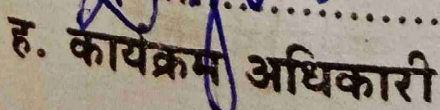 ह. कार्यक्रम अधिकारी